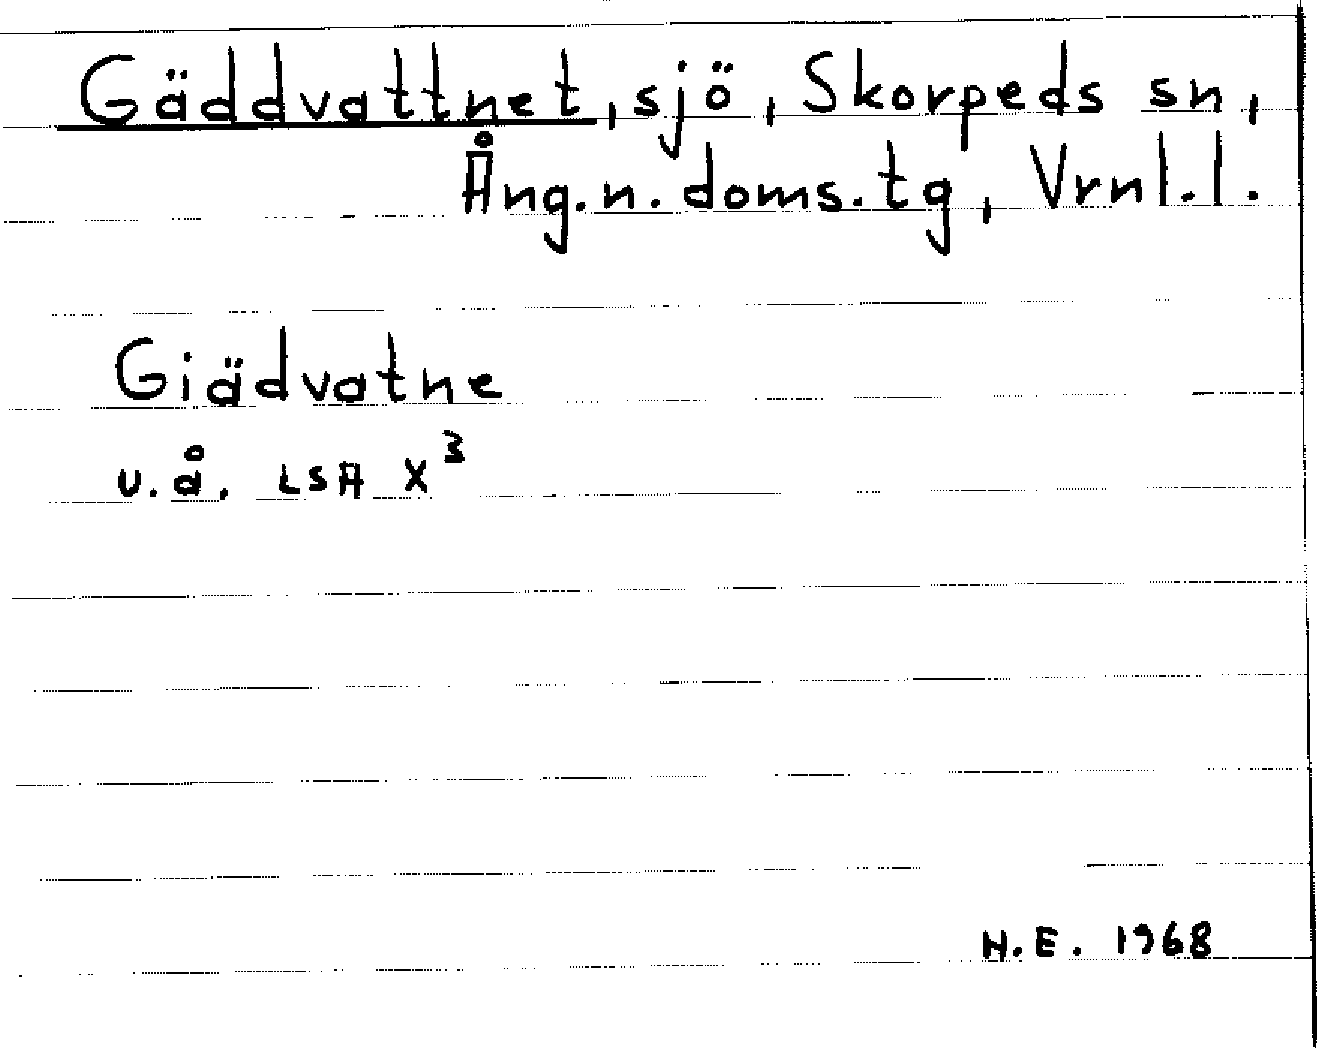 Gäddvattnet, sjö, Skorpeds sn,
Ång.n.doms.tg, Vrnl.l.
Giädvatne
u.å. LSA X³
H.E. 1968